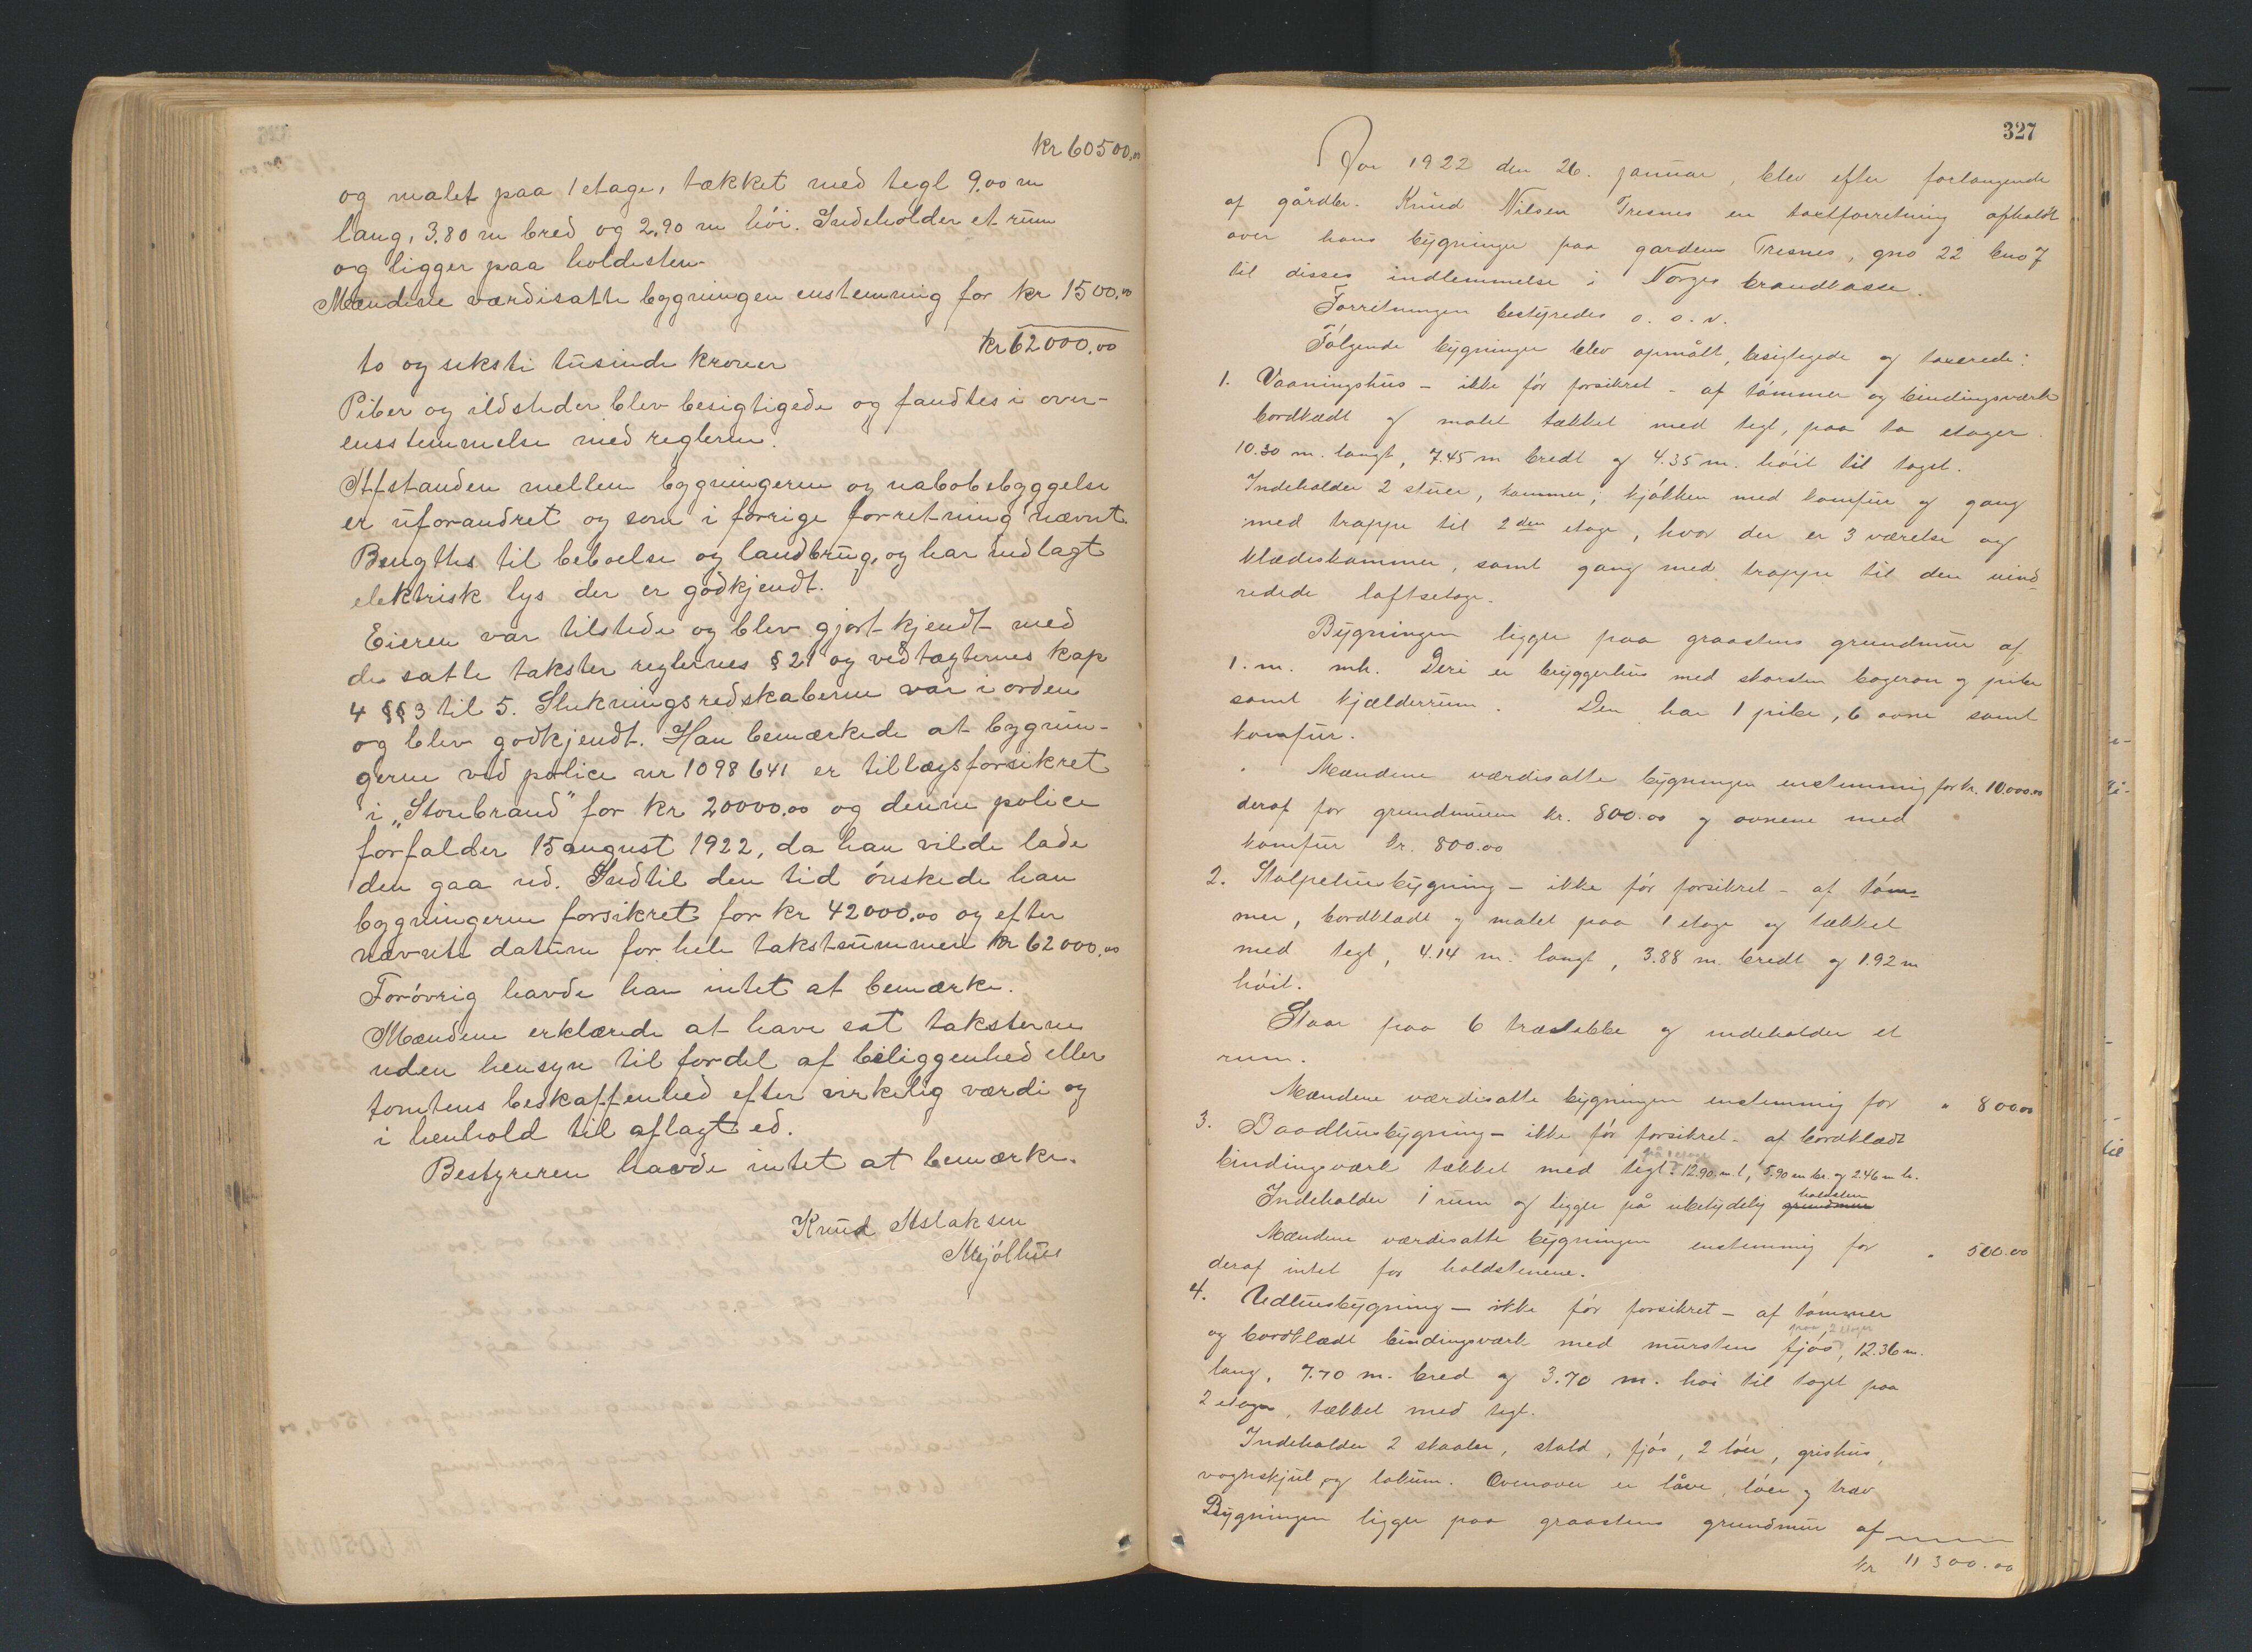 kr 60500.00
og malet paa 1 etage, tækket med tegl 9.00 m
lang, 3.80 m bred og 2.90 m höi. Indeholder et rum
og ligger paa holdesten
Mændene værdisatte bygningen enstemmig for kr 1500.00
kr 62000.00
to og seksti tusinde kroner
Piber og ildsteder blev besigtigede og fandtes i over-
ensstemmelse med reglerne.
Afstanden mellem bygningerne og nabobebyggelse
er uforandret og som i forrige forretning nævnt.
Benyttes til beboelse og landbrug, og har indlagt
elektrisk lys der er godkjendt.
Eieren var tilstede og blev gjort kjendt med
de satte takster reglernes § 21 og vedtægternes kap
4 §§ 3 til 5. Slukningsredskaberne var i orden
og blev godkjendt. Han bemærkede at bygnin-
gerne ved police nr 1098641 er tillægsforsikret
i „Storebrand" for kr 20000.00 og denne police
forfalder 15 august 1922, da han vilde lade
den gaa ud. Indtil den tid önskede han
bygningerne forsikret for kr 42000.00 og efter
nævnte datum for hele takstsummen kr 62000.00
ForöVrig havde han intet at bemærke.
Mændene erklærede at have sat taksterne
uden hensyn til fordel af beliggenhed eller
tomtens beskaffenhed efter virkelig værdi og
i henhold til aflagt ed.
Bestyreren havde intet at bemærke.
Knud Aslaksen
Mjölhus
327
Aar 1922 den 26. januar, blev efter forlangende
af gårdbr. Knud Nilsen Tresnes en taxtforretning afholdt
over hans bygninger paa gardens Tresnes, gno 22 bno 7
til disses indlemmelse i Norges brandkasse.
Forretningen bestyredes o. s. v.
Fölgende bygninger blev opmålt, besigtigede og taxerede:
1. Vaaningshus - ikke för forsikret - af tömmer og bindingsværk
bordklædt og malet tækket med tegl, paa to etager.
10.30 m. langt, 7.45 m bredt og 4.35 m. höit til taget.
Indeholder 2 stuer, kammer, kjökken med komfur og gang
med trappe til 2den etage, hvor der er 3 værelse og
klædeskammer, samt gang med trappe til den uind-
redede loftsetage.
Bygningen ligger paa graastens grundmur af
1. m. mh. Deri er bryggerhus med skorsten bagerovn og pibe
samt kjælderrum. Den har 1 pibe, 6 ovne samt
komfur.
Mændene værdisatte bygningen enstemmig for kr. 10.000.00
deraf for grundmuren kr. 800.00 og ovnene med
komfur kr. 800.00
2. Stolpehusbygning - ikke för forsikret - af töm-
mer, bordklædt og malet paa 1 etage og tækket
med tegl, 4.14 m. langt, 3.88 m. bredt og 1.92 m
höit.
Staar paa 6 træstokke og indeholder et
rum.
Mændene værdisatte bygningen enstemmig for " 800.00
3. Baadhusbygning - ikke för forsikret - af bordklædt
på 1 etage
bindingsværk tækket med tegl. 12.90 m. l, 5.90 m br. og 2.46 m h.
holdsten
Indeholder 1 rum og ligger på ubetydelig grundmur
Mændene værdisatte bygningen enstemmig for " 500.00
deraf intet for holdstenene.
4. Udhusbygning - ikke för forsikret - af tömmer
paa 2 etager
og bordklædt bindingsværk med murstens fjös, 12.36 m.
lang, 7.70 m. bred og 3.70 m. höi til taget paa
2 etager, tækket med tegl.
Indeholder 2 skaaler, stald, fjös, 2 löer, grishus,
vognskjul, og lokum. Ovenover er låve, löer og træv
Bygningen ligger paa graastens grundmur af
kr 11300.00